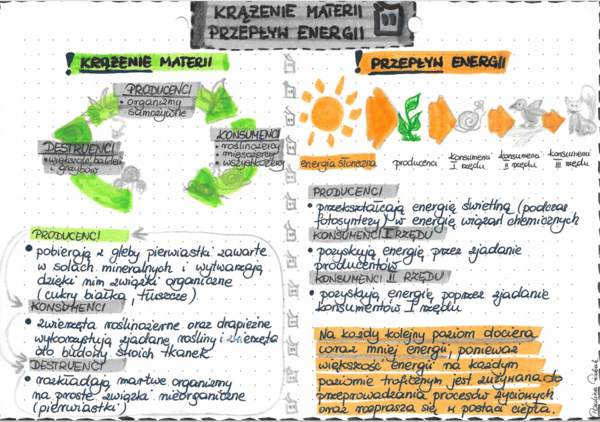 KRĄŻENIE MATERII
PRZEPŁYW ENERGII
! KRĄŻENIE MATERII
PRODUCENCI
• organizmy
samożywne
DESTRUENCI
• większość bakterii
i grzybów
KONSUMENCI
• roślinożercy
• mięsożercy
• wszystkożercy
PRODUCENCI
• pobierają z gleby pierwiastki zawarte
w solach mineralnych i wytwarzają
dzięki nim związki organiczne
(cukry białka, tłuszcze)
KONSUMENCI
• zwierzęta roślinożerne oraz drapieżne
wykorzystują zjadane rośliny i zwierzęta
do budowy swoich tkanek
DESTRUENCI
• rozkładają martwe organizmy
na proste związki nieorganiczne
(pierwiastki)
! PRZEPŁYW ENERGII
energia słoneczna
producenci
konsumenci
I rzędu
konsumenci
II rzędu
konsumenci
III rzędu
PRODUCENCI
• przekształcają energię świetlną (podczas
fotosyntezy) w energię wiązań chemicznych
KONSUMENCI I RZĘDU
• pozyskują energię przez zjadanie
producentów
KONSUMENCI II RZĘDU
• pozyskują energię poprzez zjadanie
konsumentów I rzędu
Na każdy kolejny poziom dociera
coraz mniej energii, ponieważ
większość energii na każdym
poziomie troficznym jest zużywana do
przeprowadzania procesów życiowych
oraz rozprasza się w postaci ciepła.